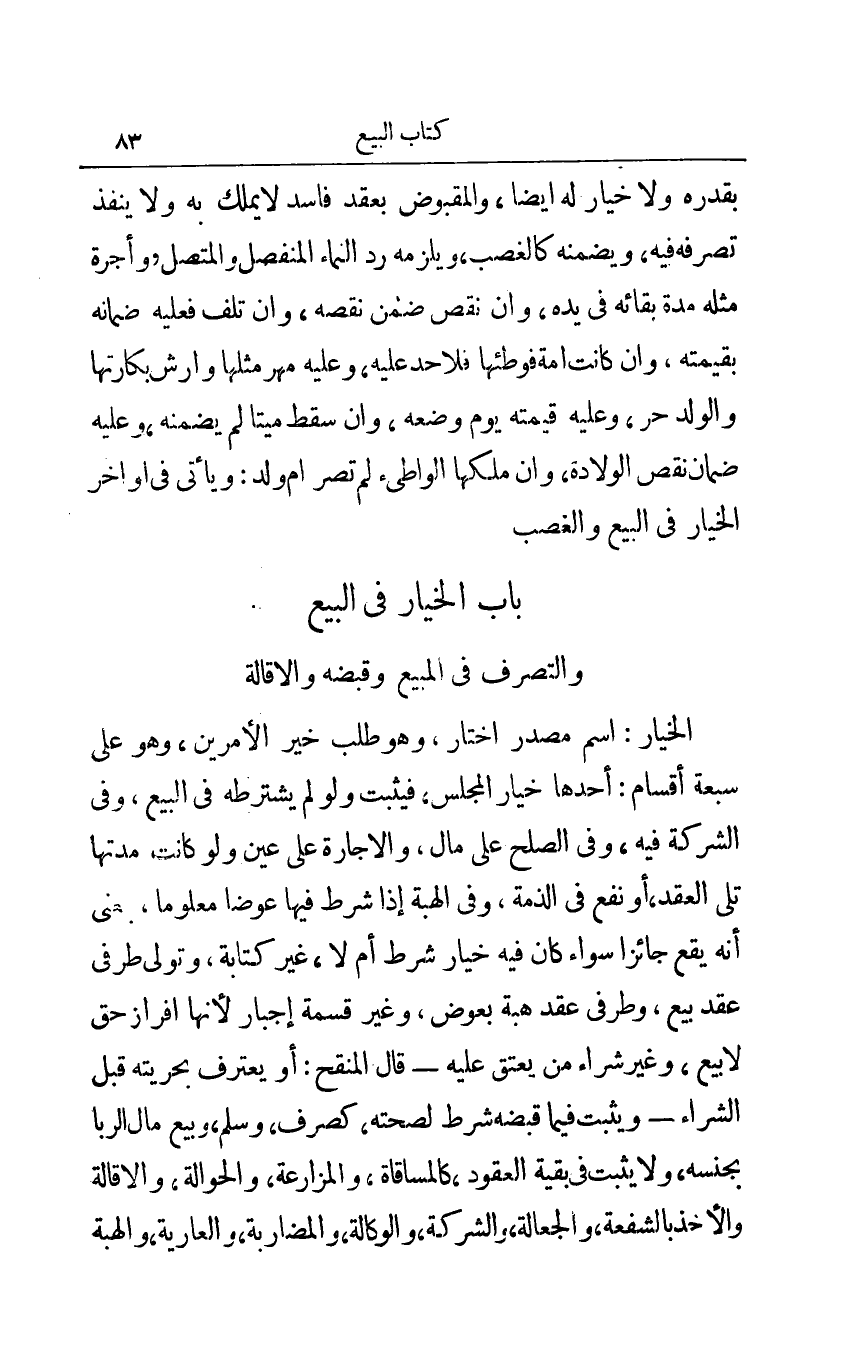 كتاب البيع ٨٣
بقدره ولا خيار له ايضا ، والمقبوض بعقد فاسد لا يملك به ولا ينفذ
تصرفه فيه ، ويضمنه كالغصب ، ويلزمه رد النماء المنفصل والمتصل ، وأجرة
مثله مدة بقائه فى يده ، وان نقص ضمن نقصه ، وان تلف فعليه ضمانه
بقيمته ، وان كانت امة فوطئها فلا حد عليه ، وعليه مهر مثلها وارش بكارتها
والولد حر ، وعليه قيمته يوم وضعه ، وان سقط ميتا لم يضمنه ، وعليه
ضمان نقص الولادة ، وان ملكها الواطىء لم تصر ام ولد : ويأتى فى اواخر
الخيار فى البيع والغصب
باب الخيار فى البيع
والتصرف فى المبيع وقبضه والاقالة
الخيار : اسم مصدر اختار ، وهو طلب خير الأمرين ، وهو على
سبعة أقسام : أحدها خيار المجلس ، فيثبت ولو لم يشترطه فى البيع ، وفى
الشركة فيه ، وفى الصلح على مال ، والاجارة على عين ولو كانت مدتها
تلى العقد ، أو نفع فى الذمة ، وفى الهبة إذا شرط فيها عوضا معلوما ،
أنه يقع جائزا سواء كان فيه خيار شرط أم لا ، غير كتابة ، وتولى طرفى
عقد بيع ، وطرفى عقد هبة بعوض ، وغير قسمة إجبار لأنها افراز حق
لا بيع ، وغير شراء من يعتق عليه — قال المنقح : أو يعترف بحريته قبل
الشراء — ويثبت فيما قبضه شرط لصحته ، كصرف ، وسلم ، وبيع مال الربا
بجنسه ، ولا يثبت فى بقية العقود ، كالمساقاة ، والمزارعة ، والحوالة ، والاقالة
والأخذ بالشفعة ، والجعالة ، والشركة ، والوكالة ، والمضاربة ، والعارية ، والهبة